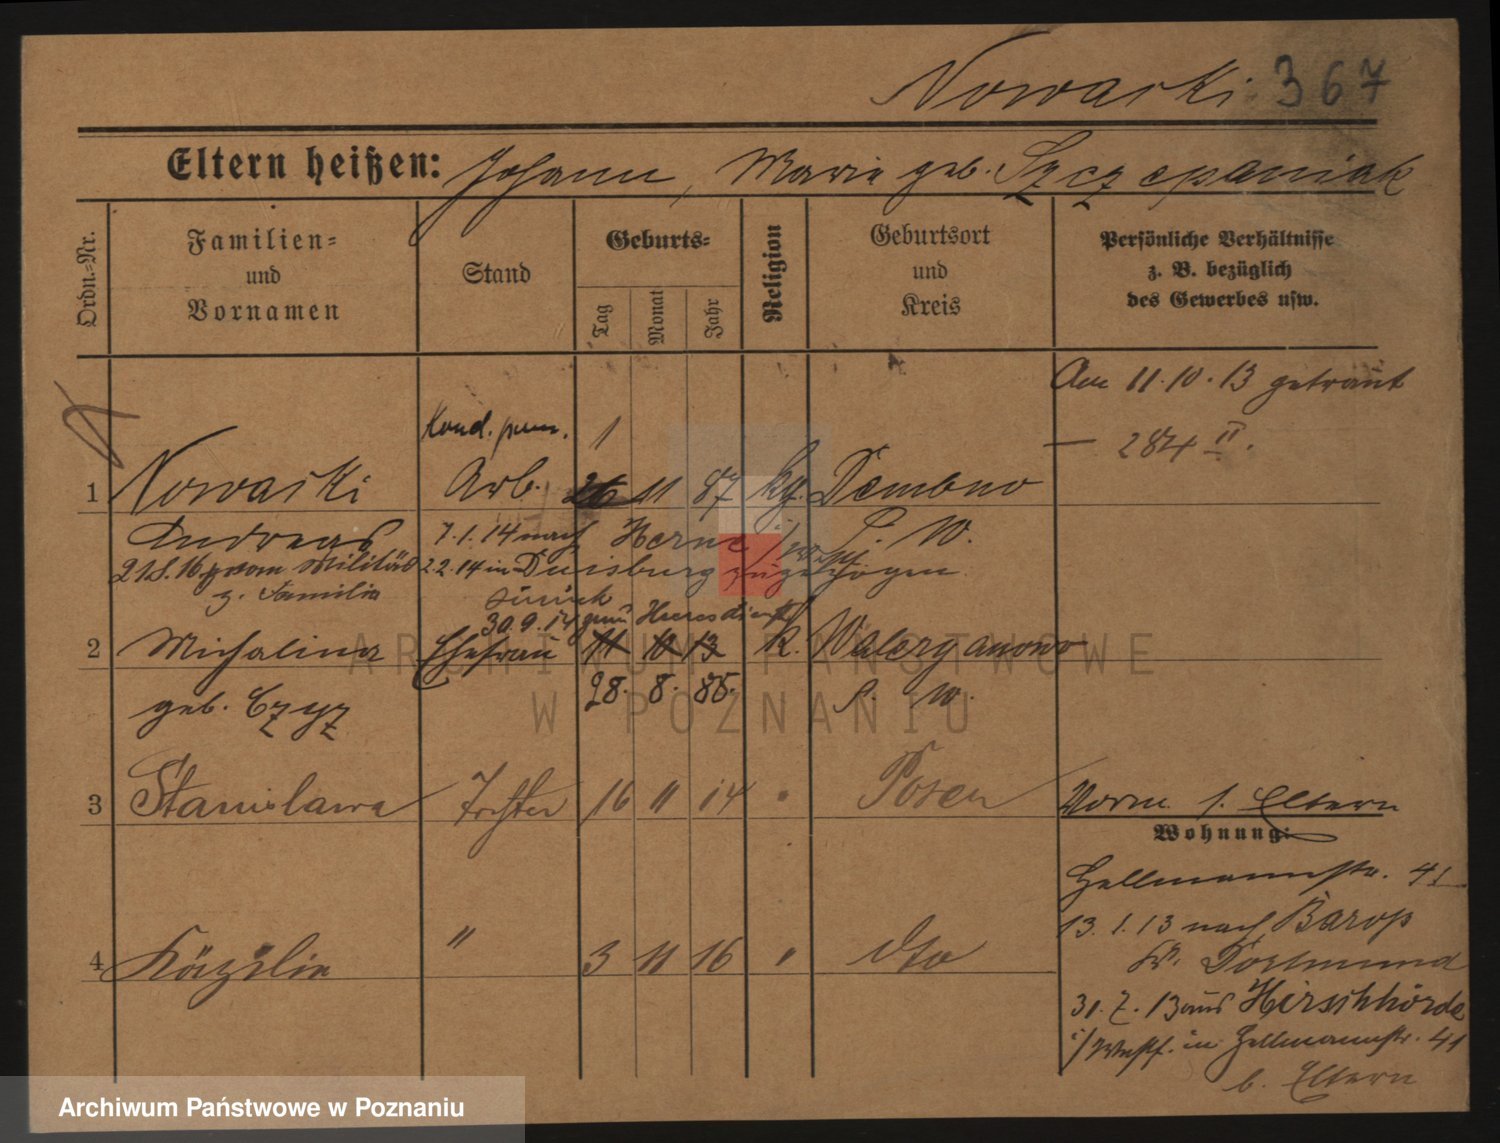 Nowaski 367
Eltern heißen: Johann, Marie geb. Szczepaniak
Ordn.-Nr.
Familien-
und
Vornamen
Stand
Geburts-
Tag
Monat
Jahr
Religion
Geburtsort
und
Kreis
Persönliche Verhältnisse
z. B. bezüglich
des Gewerbes usw.
Am 11.10.13 getraut
284 II.
1
1 Nowaski Arb. 26 11 87 kg. Dembno
Andreas
7.1.14 nach Herne i/Westf.
W.
vom Militär
z. Familie
2.2.14 in Duisburg zugezogen.
zurück
30.9.14 zum Heeresdienst
2 Michalina Ehefrau 11 10 13 k. Walerganowo
geb. Czyz
28. 8. 88.
W.
3 Stanislawa Tochter 16 11 14 " Posen
Vorm. s. Eltern
Wohnung:
Hellmannstr. 41
13.1.13 nach Barop
Kr. Dortmund
4 Käzilie " 3 11 16 " dto
31.7.13 aus Hirschhörde
i/Westf. in Hellmannstr. 41
b. Eltern
ARCHIWUM PAŃSTWOWE
W POZNANIU
Archiwum Państwowe w Poznaniu